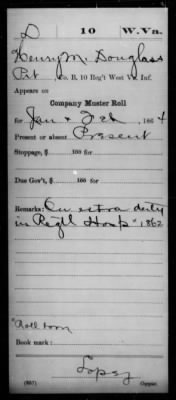 D | 10 | W. Va.
Henry M. Douglass
Pvt, Co. B, 10 Reg't West Va. Inf.
Appears on
Company Muster Roll
for Jan & Feb, 1864
Present or absent Present
Stoppage, $ 100 for
Due Gov't, $ 100 for
Remarks: On extra duty
in Regtl Hosp "1862
"Roll torn
Book mark:
Lopez
(857) Copyist.